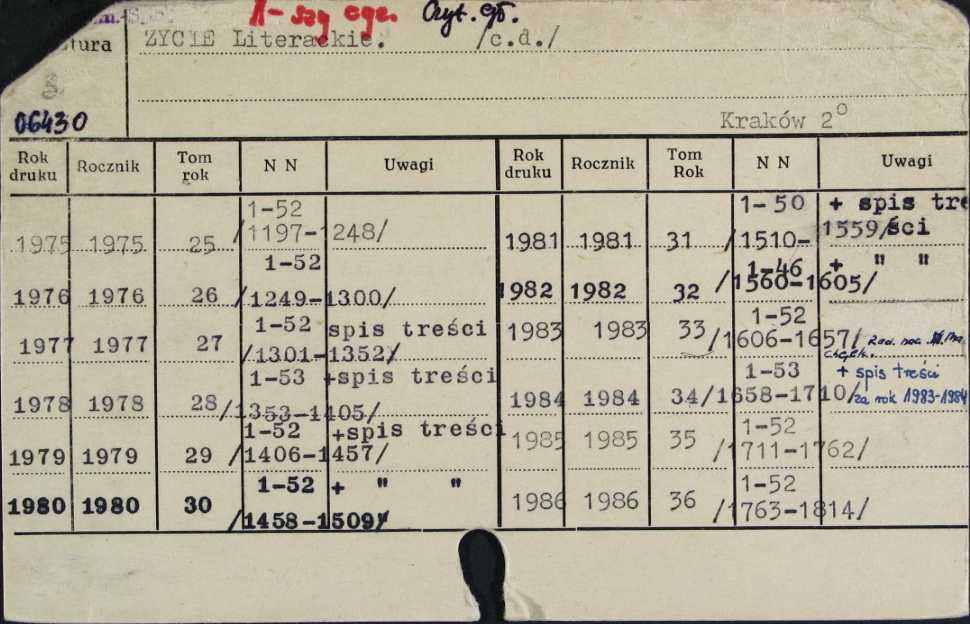 I-szy egz. Czyt. gł.
tura ŻYCIE Literackie. /c.d./
06430
Kraków 2°
Rok druku Rocznik Tom rok N N Uwagi
1975 1975 25 1-52 /1197-1248/
1976 1976 26 1-52 /1249-1300/
1977 1977 27 1-52 /1301-1352/ spis treści
1978 1978 28 1-53 /1353-1405/ +spis treści
1979 1979 29 1-52 /1406-1457/ +spis treści
1980 1980 30 1-52 /1458-1509/ + " "
Rok druku Rocznik Tom Rok N N Uwagi
1981 1981 31 1-50 /1510-1559/ + spis treści
1982 1982 32 1-46 /1560-1605/ + " "
1983 1983 33 1-52 /1606-1657/
1984 1984 34 1-53 /1658-1710/ + spis treści za rok 1983-1984
1985 1985 35 1-52 /1711-1762/
1986 1986 36 1-52 /1763-1814/